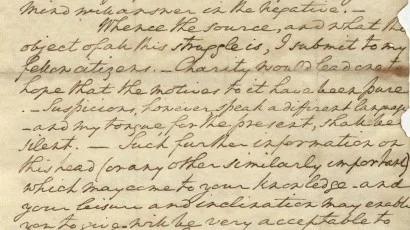 mind will answer in the negative. —
Whence the source, and what the
object of all this struggle is, I submit to my
fellow citizens. — Charity would lead one to
hope that the motives to it have been pure
. — Suspicions, however, speak a different language
— and my tongue for the present, shall be
silent. — Such further information on
this head (or any other similarly important)
which may come to your knowledge — and
your leisure and inclination may enable
you to give will be very acceptable to